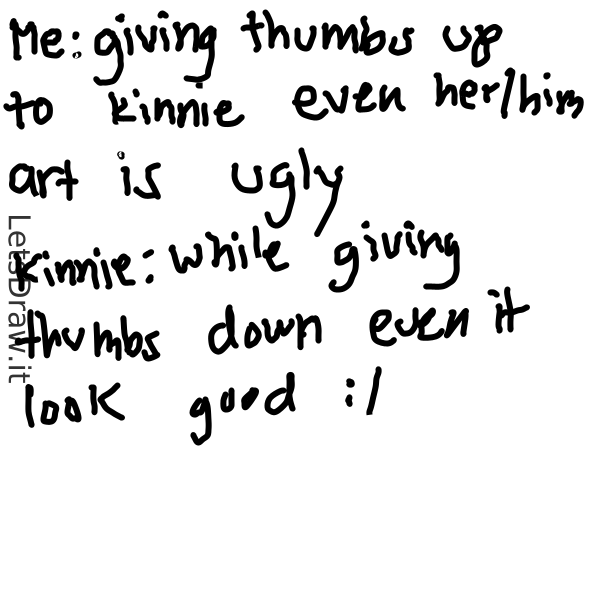 Me: giving thumbs up
to kinnie even her/him
art is ugly
kinnie: while giving
thumbs down even it
look good :/
LetsDraw.it